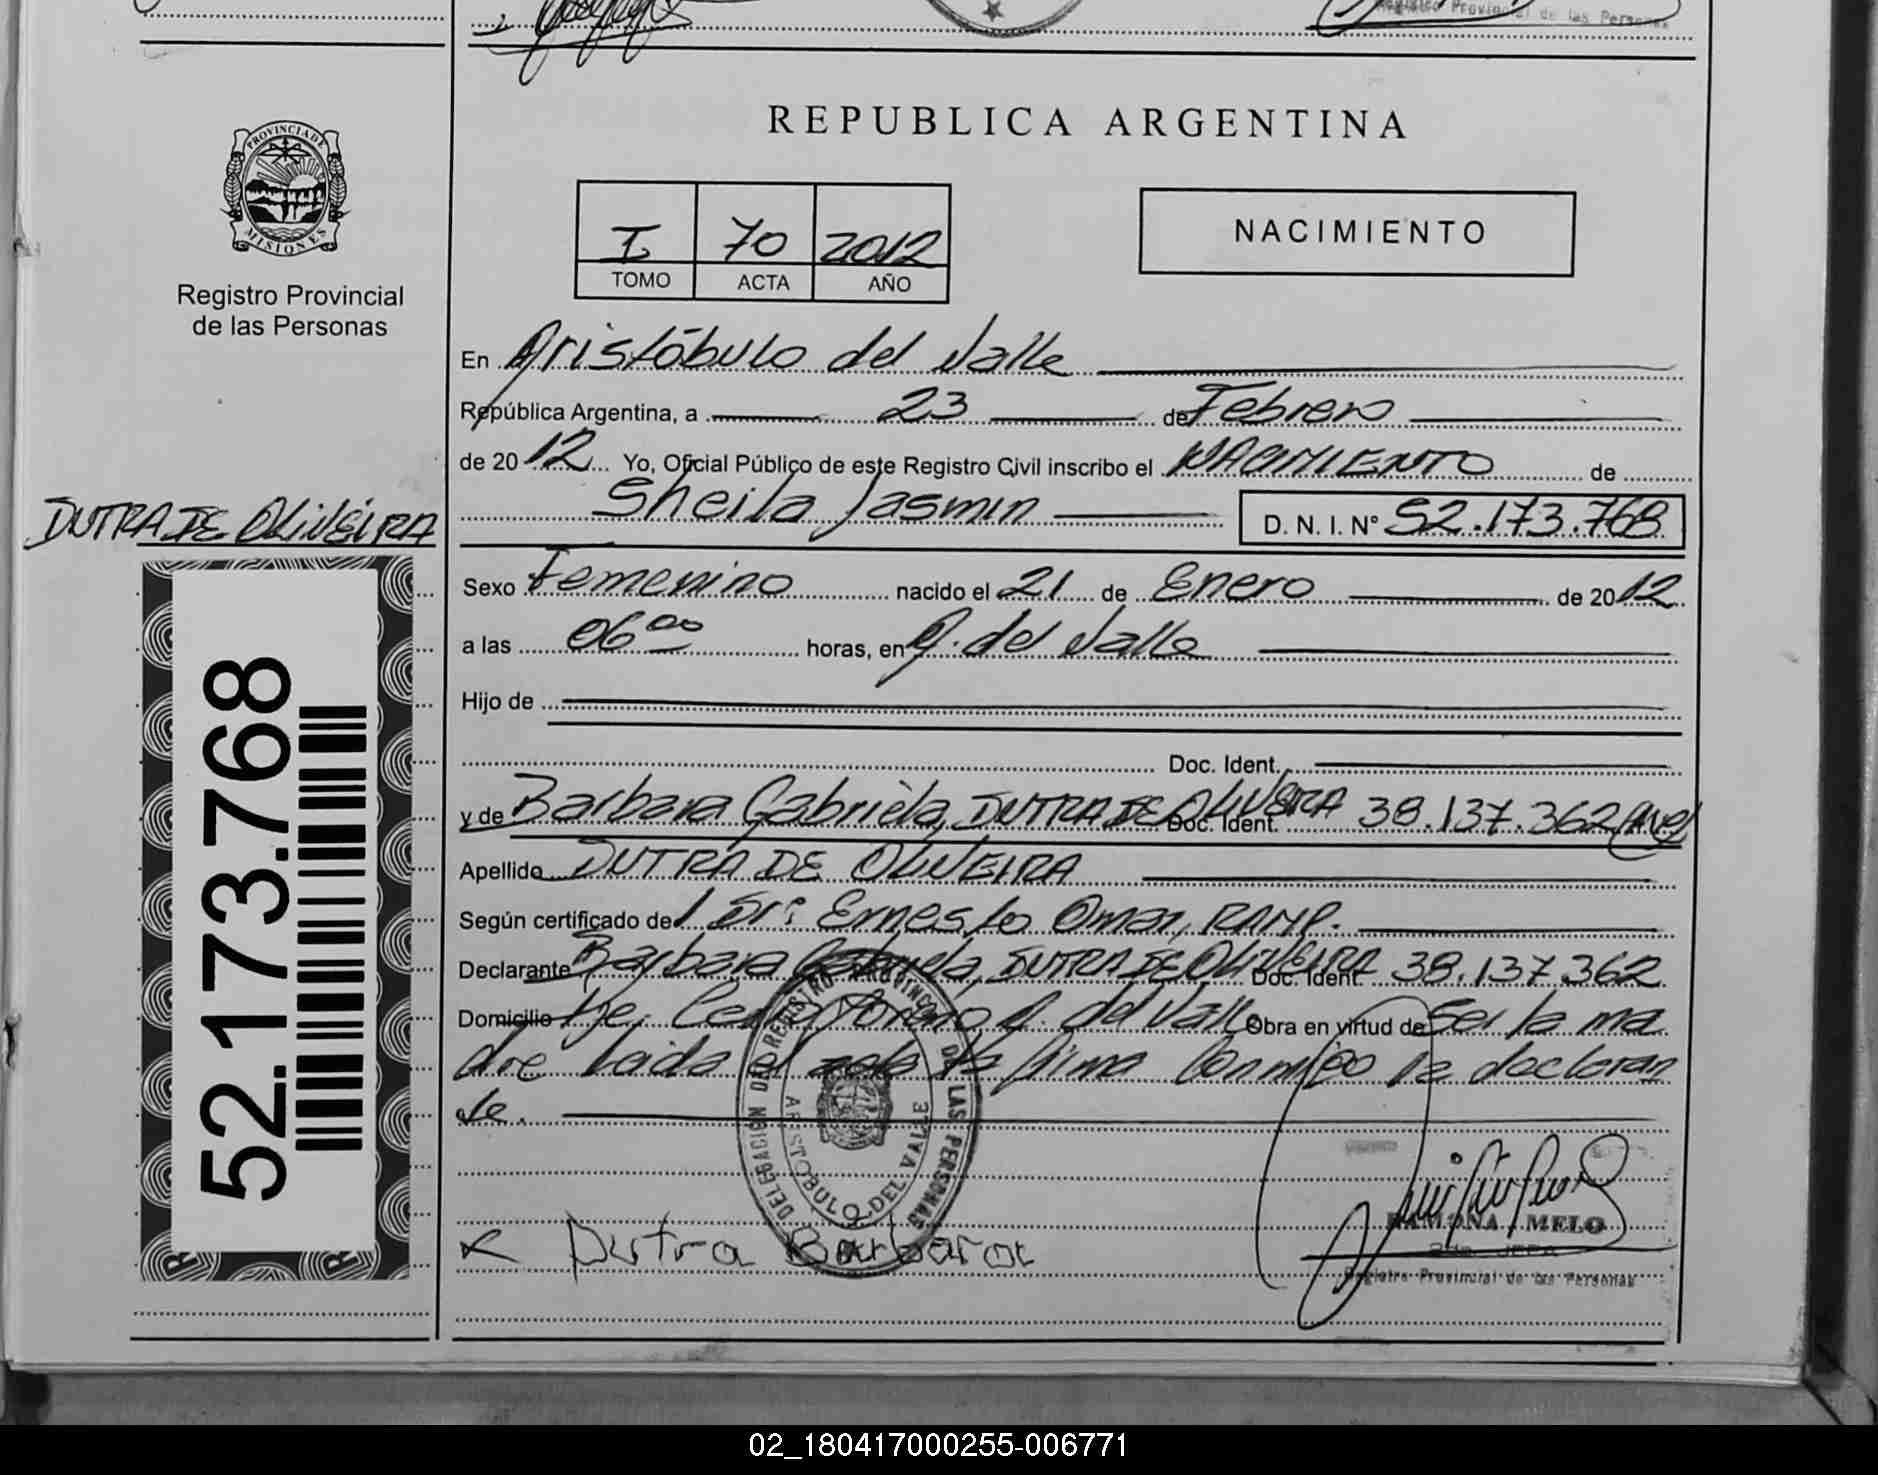 Registro Provincial de las Personas
REPUBLICA ARGENTINA
PROVINCIA DE
MISIONES
Registro Provincial
de las Personas
I 70 2012
TOMO ACTA AÑO
NACIMIENTO
En Aristóbulo del Valle
República Argentina, a 23 de Febrero
de 2012 Yo, Oficial Público de este Registro Civil inscribo el NACIMIENTO de
Sheila Jasmin D. N. I. N° 52.173.768
DUTRA DE OLIVEIRA
52.173.768
Sexo Femenino nacido el 21 de Enero de 2012
a las 06 00 horas, en A. del Valle
Hijo de
Doc. Ident.
y de Barbara Gabriela, DUTRA DE OLIVEIRA Doc. Ident. 38.137.362
Apellido DUTRA DE OLIVEIRA
Según certificado de Ernesto Omar,
Declarante Barbara Gabriela, DUTRA DE OLIVEIRA Doc. Ident. 38.137.362
Domicilio A. del Valle Obra en virtud de Ser la ma
dre Leida el acta la firma Conmigo la declaran
te.
DELEGACION DEL REGISTRO PROVINCIAL DE LAS PERSONAS
ARISTOBULO DEL VALLE
Dutra Barbara
RAMONA MELO
2da. JEFA
Registro Provincial de las Personas
02_180417000255-006771